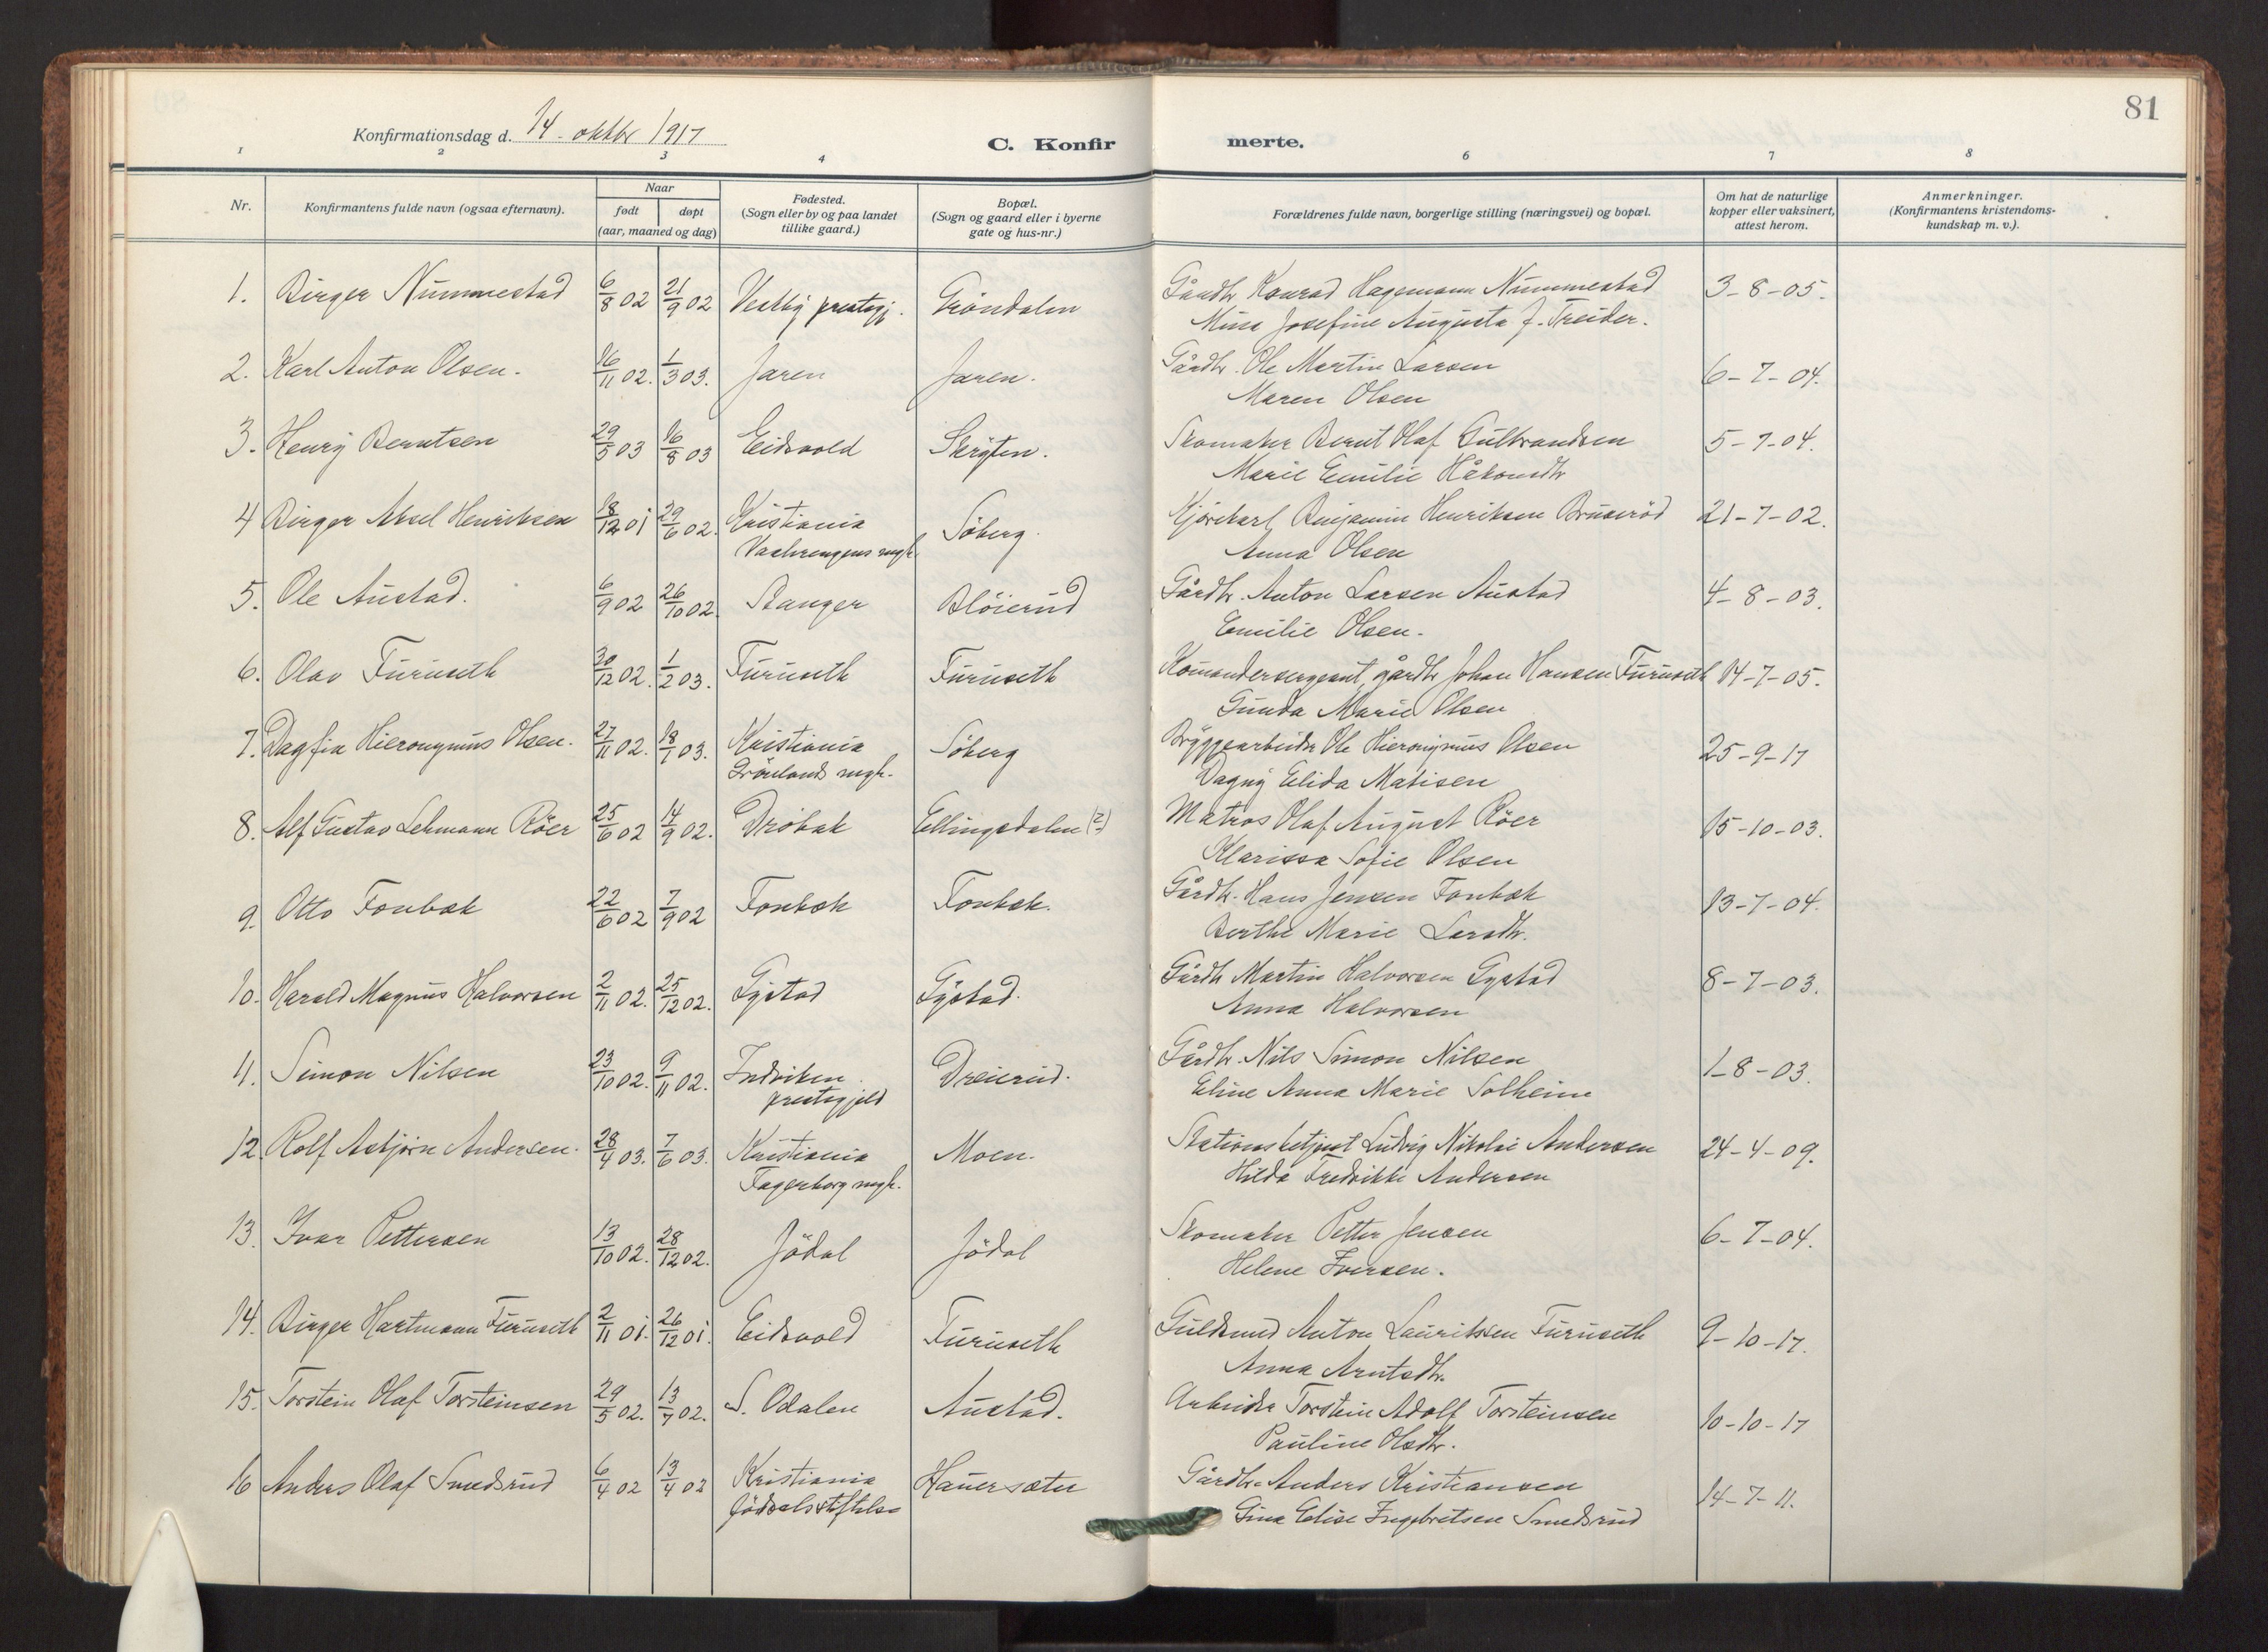 81
Konfirmationsdag d. 14. oktbr 1917
C. Konfirmerte.
1 2 3 4 6 7 8
Nr.
Konfirmantens fulde navn (ogsaa efternavn).
Naar
født døpt
(aar, maaned og dag)
Fødested.
(Sogn eller by og paa landet
tillike gaard.)
Bopæl.
(Sogn og gaard eller i byerne
gate og hus-nr.)
Forældrenes fulde navn, borgerlige stilling (næringsvei) og bopæl.
Om hat de naturlige
kopper eller vaksinert,
attest herom.
Anmerkninger.
(Konfirmantens kristendoms-
kundskap m. v.).
1. Birger Nummestad 6/8 02 21/9 02 Vestby prestegj. Gröndalen Gårdbr Konrad Hagemann Nummestad 3-8-05.
Mina Josefine Augusta f. Treider.
2. Karl Anton Olsen. 16/11 02. 1/3 03. Jaren Jaren. Gårdbr. Ole Martin Larsen 6-7-04.
Maren Olsen
3. Henry Berntsen 29/5 03 16/8 03 Eidsvold Skryten. Skomaker Bernt Olaf Gulbrandsen 5-7-04.
Marie Emilie Håkonsdtr
4 Birger Aksel Henriksen 18/12 01 29/6 02. Kristiania Söberg. Kjörekarl Benjamin Henriksen Bruseröd 21-7-02.
Vaalerengens mgh. Anna Olsen
5. Ole Austad. 6/9 02 26/10 02. Stange Blöierud Gårdbr. Anton Larsen Austad 4-8-03.
Emilie Olsen.
6. Olav Furuseth 30/12 02. 1/2 03. Furuseth Furuseth Komandersergeant, gårdbr Johan Hansen Furuseth 14-7-05.
Gunda Marie Olsen
7. Dagfin Hieronymus Olsen. 27/11 02. 18/1 03. Kristiania Söberg Bryggearbeider Ole Hieronymus Olsen 25-9-17
Grönlands mgh. Dagny Elida Matisen
8. Alf Gustav Lehmann Röer 25/6 02 14/9 02. Dröbak Ellingsdalen (?) Matros Olaf August Röer 15-10-03.
Klarissa Sofie Olsen
9. Otto Fonbæk 22/6 02 7/9 02 Fonbæk Fonbæk. Gårdbr. Hans Jensen Fonbæk 13-7-04.
Berthe Marie Larsdtr.
10. Harald Magnus Halvorsen 2/11 02. 25/12 02. Gystad Gystad. Gårdbr Martin Halvorsen Gystad 8-7-03.
Anna Halvorsen
11. Simon Nilsen 23/10 02. 9/11 02. Indviken Dreierud. Gårdbr. Nils Simon Nilsen 1-8-03.
prestegjeld Eline Anna Marie Solheim
12. Rolf Asbjörn Andersen. 28/4 03. 7/6 03. Kristiania Moen. Stationsbetjent Ludvig Nikolai Andersen 24-4-09.
Fagerborg mgh. Hilda Fredrikke Andersen
13. Ivar Pettersen 13/10 02. 28/12 02. Jödal Jödal Skomaker Petter Jensen 6-7-04.
Helene Iversen.
14. Birger Hartmann Furuseth 2/11 01. 26/12 01. Eidsvold Furuseth Guldsmed Anton Lauritssen Furuseth 9-10-17.
Anna Arntsdtr.
15. Torstein Olaf Torsteinsen 29/5 02. 13/7 02. S. Odalen Austad. Arbeider Torstein Adolf Torsteinsen 10-10-17
Pauline Olsdtr.
16 Anders Olaf Smedsrud 6/4 02 13/4 02 Kristiania Hauersæter Gårdbr. Anders Kristiansen 14-7-11.
födselsstiftelse Gina Elise Ingebretsen Smedsrud